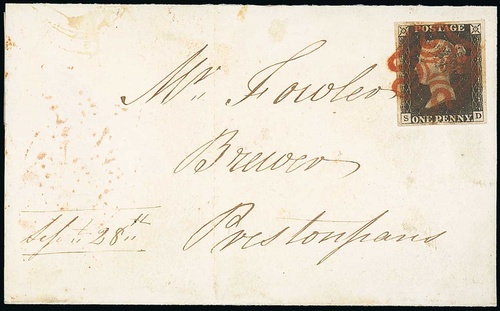 POSTAGE
S D
ONE PENNY
Mr Fowler
Brewer
Prestonpans
Sept 28th